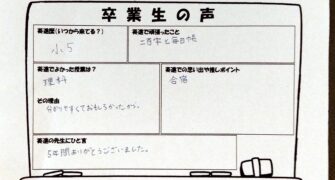 卒業生の声
英進度(いつから来てる?)
小5
英進で頑張ったこと
二百字と毎日帳
英進でよかった授業は?
理科
その理由
分かりやすくておもしろかったから。
英進での思い出や推しポイント
合宿
英進の先生にひと言
5年間ありがとうございました。